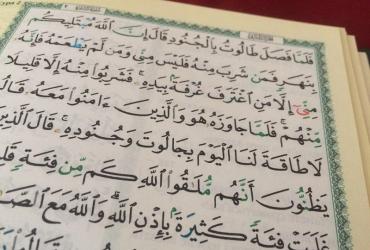 فَلَمَّا فَصَلَ طَالُوتُ بِٱلْجُنُودِ قَالَ إِنَّ ٱللَّهَ مُبْتَلِيكُم
بِنَهَرٍ فَمَن شَرِبَ مِنْهُ فَلَيْسَ مِنِّى وَمَن لَّمْ يَطْعَمْهُ فَإِنَّهُۥ
مِنِّىٓ إِلَّا مَنِ ٱغْتَرَفَ غُرْفَةًۢ بِيَدِهِۦ ۚ فَشَرِبُوا۟ مِنْهُ إِلَّا قَلِيلًا
مِّنْهُمْ ۚ فَلَمَّا جَاوَزَهُۥ هُوَ وَٱلَّذِينَ ءَامَنُوا۟ مَعَهُۥ قَالُ
لَا طَاقَةَ لَنَا ٱلْيَوْمَ بِجَالُوتَ وَجُنُودِهِۦ ۚ قَالَ ٱلَّذِينَ
يَظُنُّونَ أَنَّهُم مُّلَٰقُوا۟ ٱللَّهِ كَم مِّن فِئَةٍ قَلِ
غَلَبَتْ فِئَةً كَثِيرَةًۢ بِإِذْنِ ٱللَّهِ ۗ وَٱللَّهُ مَعَ ٱلصَّ